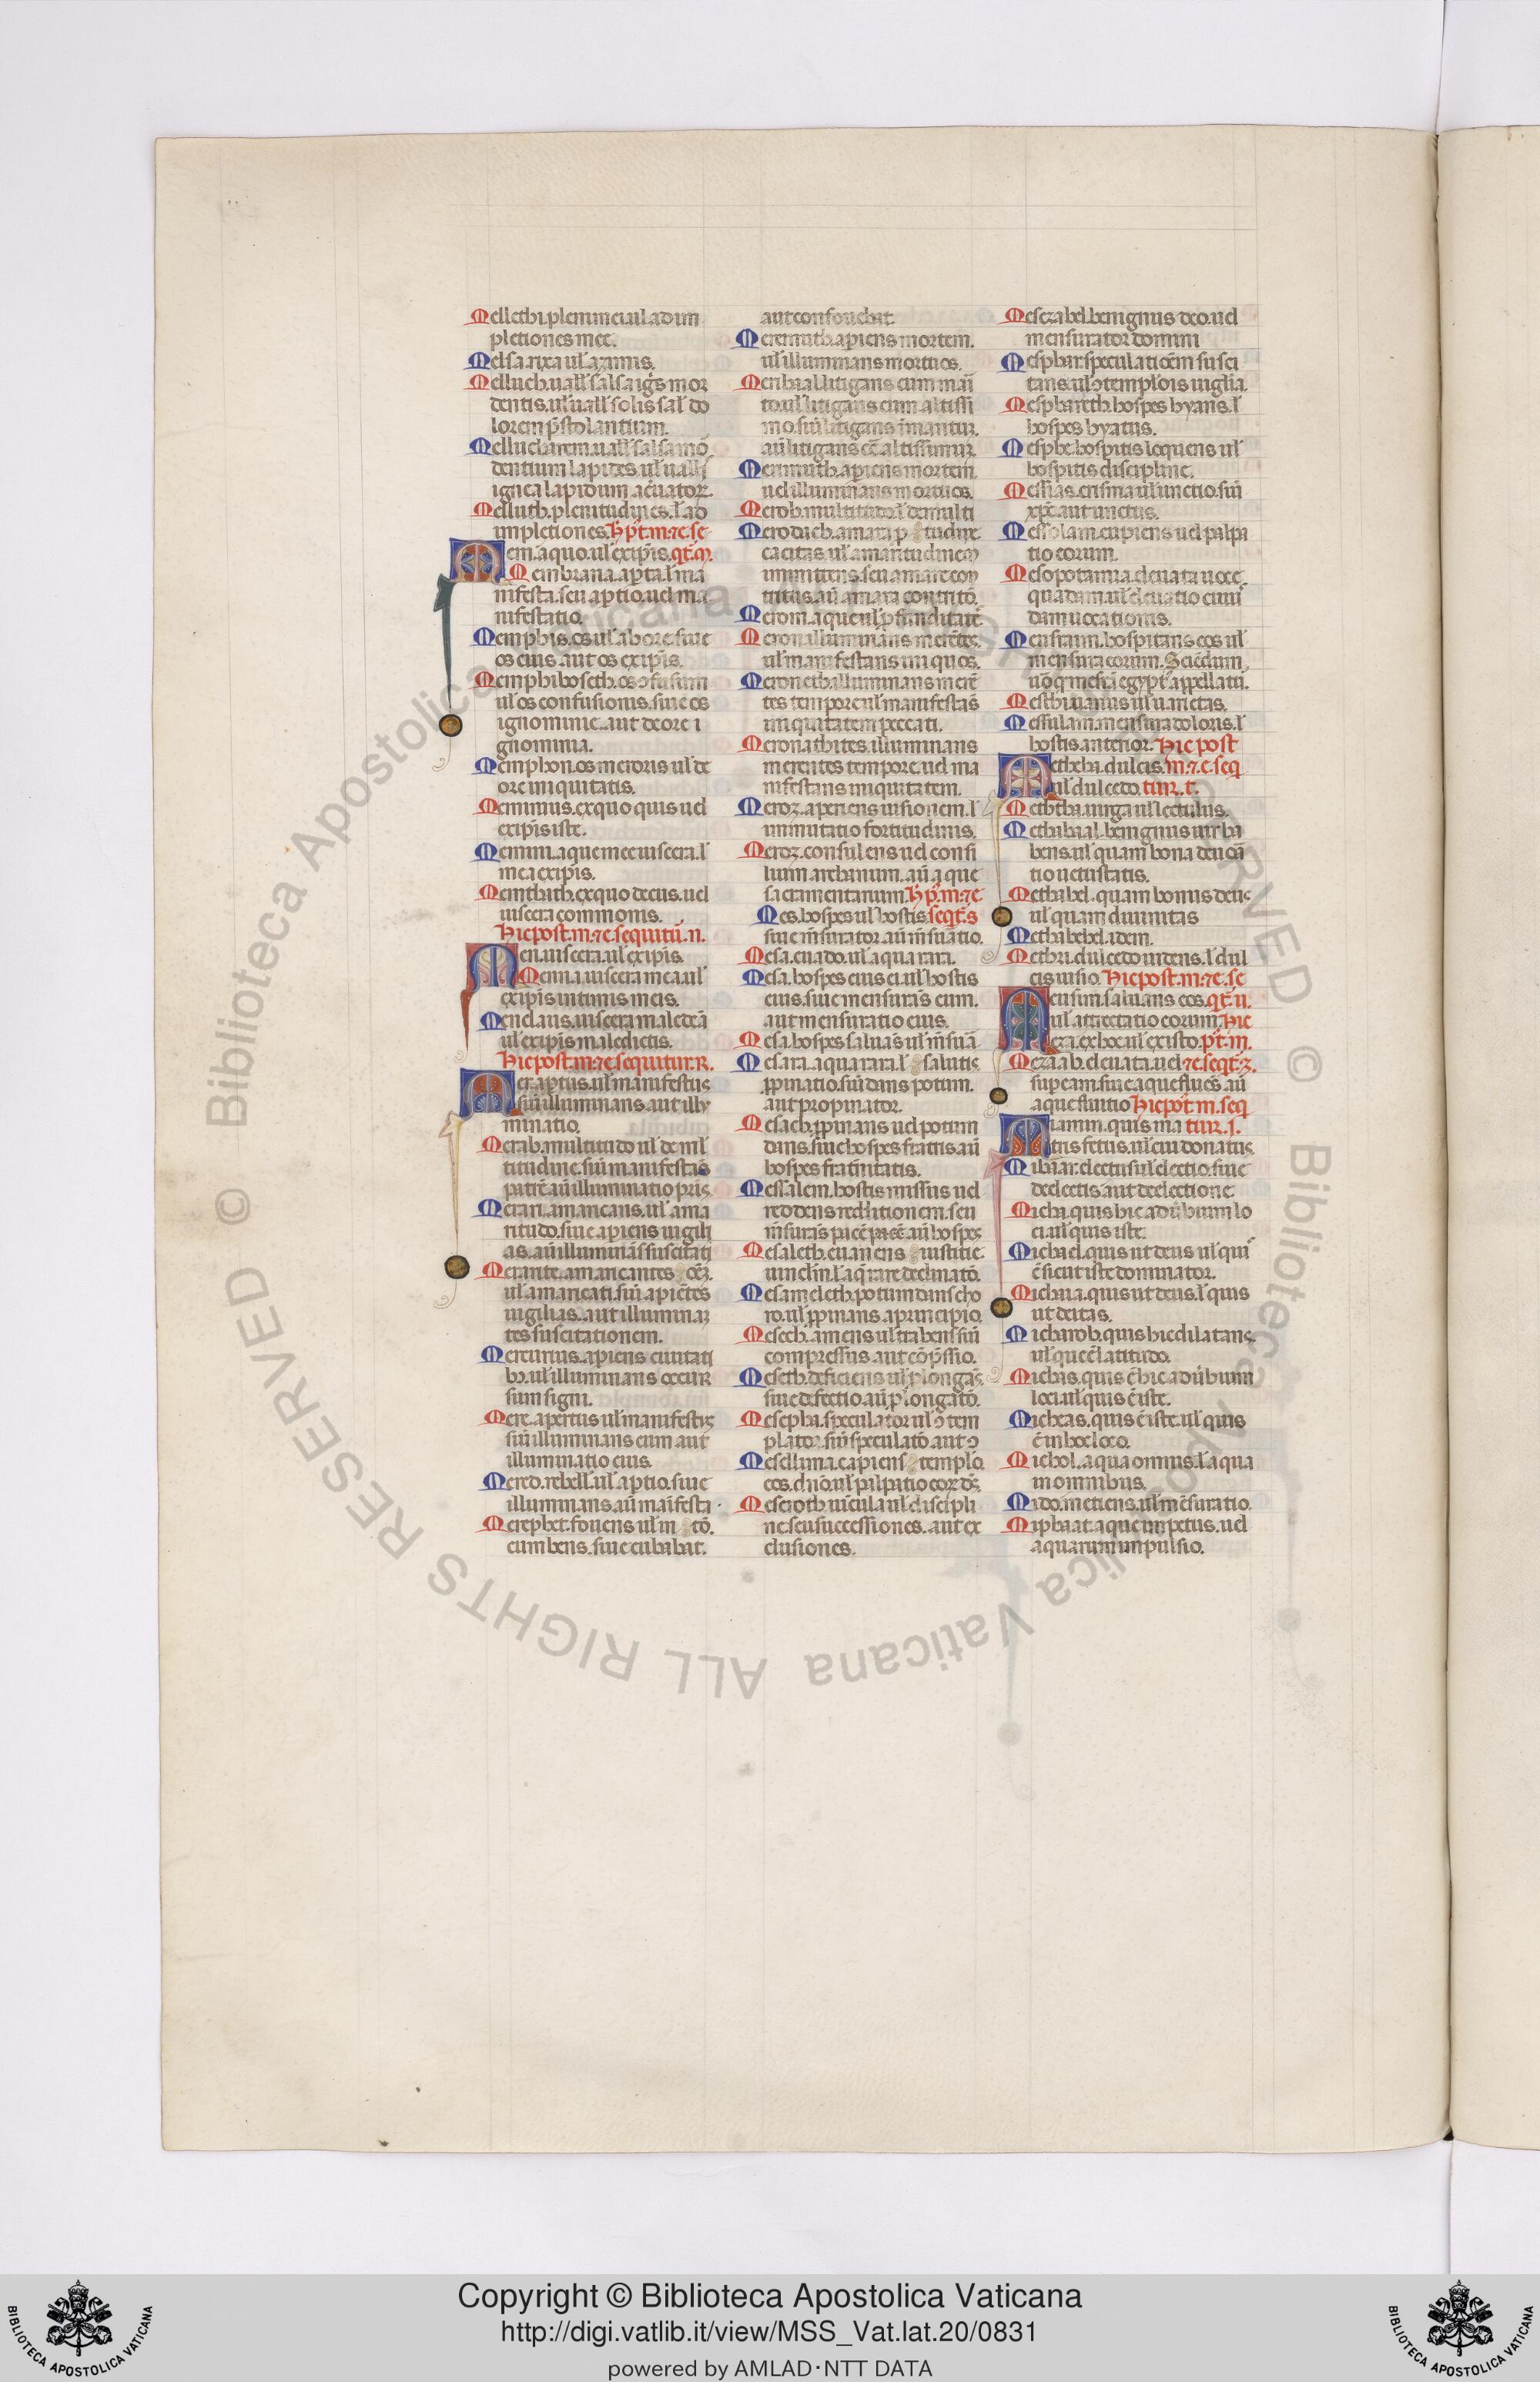 Mellethi. pleni mei. ul̃ adim
pletiones mee.
Melsa. rixa ul̃ azimis.
Melluch. uall̃ salsa ig̃s mor
dentis. ul̃ uall̃ solis sal̃ do
lorem p̃stolantium.
Melluchirem. uall̃ salsa mõ
dentium lapides ul̃ uall̃
ignea lapidum
Melluth. plenitudines. l̃ ad
impletiones. h̃ p̃t. m. ⁊ e. se
Mem. a quo. ul̃ ex ip̃is. q̃t. m.
Membrana. ap̃ta. l̃ ma
nifesta. seu ap̃tio. uel ma
nifestatio.
Memphis. os ul̃ ab ore siue
os eius. aut os ex ip̃is.
Memphiboseth. os ɔfusum
ul̃ os confusionis. siue os
ignominie. aut de ore i
gnominia.
Memphon. os meroris ul̃ de
ore iniquitatis.
Memmius. ex quo quis uel
ex ip̃is iste.
Memini. a quo mee uiscera. l̃
mea ex ip̃is.
Memthath. ex quo decus. uel
uiscera commonis.
Hic post. m. ⁊ e. sequitũ. n.
Men. uiscera. ul̃ ex ip̃is.
Menna. uiscera mea. ul̃
ex ip̃is intimis meis.
Menelaus. uiscera maledcã
ul̃ ex ip̃is maledictis.
Hic post. m. ⁊ e. sequitur. R.
Mer. ap̃tus. ul̃ manifestus
siũ illuminans aut illu
minatio.
Merab. multitudo ul̃ de ml̃
titudine. siũ manifestãs
patrẽ. aũ illuminatio p̃ris
Merari. amaricans. ul̃ ama
ritudo. siue apiens uigili
as. aũ illuminãs suscitati
Merarite. amaricantes
ul̃ amaricati. siũ apiẽtes
uigilias. aut illuminan
tes suscitationem.
Mercurius. apiens ciuitati
b. ul̃ illuminans occur
sum signi.
Mere. apertus ul̃ manifestus
siũ illuminans eum aut
illuminatio eius.
Mered. rebell̃. ul̃ ap̃tio. siue
illuminans. aũ manifesta
Merephet. fouens ul̃
cumbens. siue cubabat.
aut confouebat.
Meremuth. apiens mortem.
ul̃ illuminans mortuos.
Meribaal. litigans cum mari
to. ul̃ litigans cum altissi
mo. siũ litigans
aũ litigans cẽ altissimum.
Merimuth. apiens mortem.
uel illuminans mortuos.
Merob. multitudo. l̃ de multi
Merodach. amara p tudine
cacitas. ul̃ amaritudinem
inmittens. seu amare con
tritus. aũ amara contritõ.
Merom. aque ul̃ p̃funditatẽ
Meron. illuminãns merẽtes.
ul̃ manifestans iniquos.
Meroneth. alluminans merẽ
tes tempore. ul̃ manifestãs
iniquitatem peccati.
Meronathites. illuminans
merentes tempore. uel ma
nifestans iniquitatem.
Meroz. apenens uisionem. l̃
inmutatio fortitudinis.
Meroz. consulens uel consi
lium archanum. aũ aque
sacramentarium. h̃ p̃. m. ⁊ e
Mes. hospes ul̃ hostis. seq̃t. s
siue m̃surator. aũ m̃suratio.
Mesa. euado. ul̃ aqua rara.
Mesa. hospes eius ei. ul̃ hostis
eius. siue mensurãs eum.
aut mensuratio eius.
Mesa. hospes saluãs ul̃ m̃surã
Mesara. aqua rara. l̃ salutis
p̃pinatio. siũ dans potum.
aut propinator.
Mesach. p̃pinans uel potum
dans. siue hospes fratris. aũ
hospes fratĩnitatis.
Messalem. hostis missus uel
reddens redditionem. seu
m̃surãs pacẽ pacẽ aũ hospes
Mesaleth. euariens iustitie
Mesameleth. potum dans cho
ro. ul̃ p̃pinans a principio.
Mesech. amens ul̃ trahens siũ
compressus. aut cõp̃ssio.
Meseth. deficiens ul̃ p̃longãs
siue defectio aũ p̃longatõ.
Mesepha. speculator ul̃ ɔtem
plator. siũ speculatõ. aut ɔ
Mesellima. capiens templo
eos. dño. ul̃ palpatio eor
Meseroth. uicula ul̃ discipli
ne. seu successiones. aut ex
clusiones.
Mesezabel. benignus deo. uel
mensurator domini
Mesphar. speculatiõem susci
tans. ul̃ ɔtemplõis uigilia.
Mespharieth. hospes hyans. l̃
hospes hyatus.
Mesphe. hospitis loquens ul̃
hospitis discipline.
Messias. crisma ul̃ unctio. siũ
xp̃c. aut unctus.
Messolam. cupiens uel palpa
tio eorum.
Mesopotamia. eleuata uoce
quadam. ul̃ eleuatio cuiũ
dam uocationis.
Mesraim. hospitans eos ul̃
mensura eorum. Sciẽdum
uõ q̃ mesra egypt̃ appellatũ.
Mesthi. uarius ul̃ uarietas.
Messulam. mensura doloris. l̃
hostis anterior. Hic post
Metheba. dulcis. m. ⁊ e. seq
ul̃ dulcedo. tur. t.
Methtba. uirga ul̃ lectulus.
Methabaal. benignus uir ha
bens. ul̃ quam bona deuoẽ
tio uetustatis.
Methabel. quam bonus deus
ul̃ quam diuinitas
Methabebel. idem.
Methri. dulcedo uidens. l̃ dul
cis uisio. Hic post. m. ⁊ e. se
Meusim. saluans eos. q̃t. u.
ul̃ attrectatio eorum. Hic
Meza. ex hoc. ul̃ ex isto. p̃t. m.
Mezaab. eleuata. uel ⁊ e. seq̃t. z.
sup eam. siue aque fluẽs. aũ
aque fluuitio Hic p̃o̾t m. seq
Miamin. quis ma tur. i.
tris fetus. ul̃ cui donatus.
Mibar. electus ul̃ electio. siue
de electis. aut de electione
Micha. quis hic ad ũbium lo
ci. ul̃ quis iste.
Michael. quis ut deus ul̃ qui
ẽ sicut iste dominator.
Michaia. quis ut deus. l̃ quis
ut deitas.
Micharob. quis hic dilatans.
ul̃ que ẽ latitudo.
Michas. quis ẽ hic ad ũbium
loci. ul̃ quis ẽ iste.
Micheas. quis ẽ iste. ul̃ quis
ẽ in hoc loco.
Michol. aqua omnis. l̃ aqua
in omnibus.
Mido. metiens. ul̃ mẽsuratio.
Miphaat. aque impetus. uel
aquarum impulsio.
Copyright © Biblioteca Apostolica Vaticana
http://digi.vatlib.it/view/MSS_Vat.lat.20/0831
powered by AMLAD·NTT DATA
BIBLIOTECA APOSTOLICA VATICANA
BIBLIOTECA APOSTOLICA VATICANA
© Biblioteca Apostolica Vaticana ALL RIGHTS RESERVED
© Biblioteca Apostolica Vaticana ALL RIGHTS RESERVED